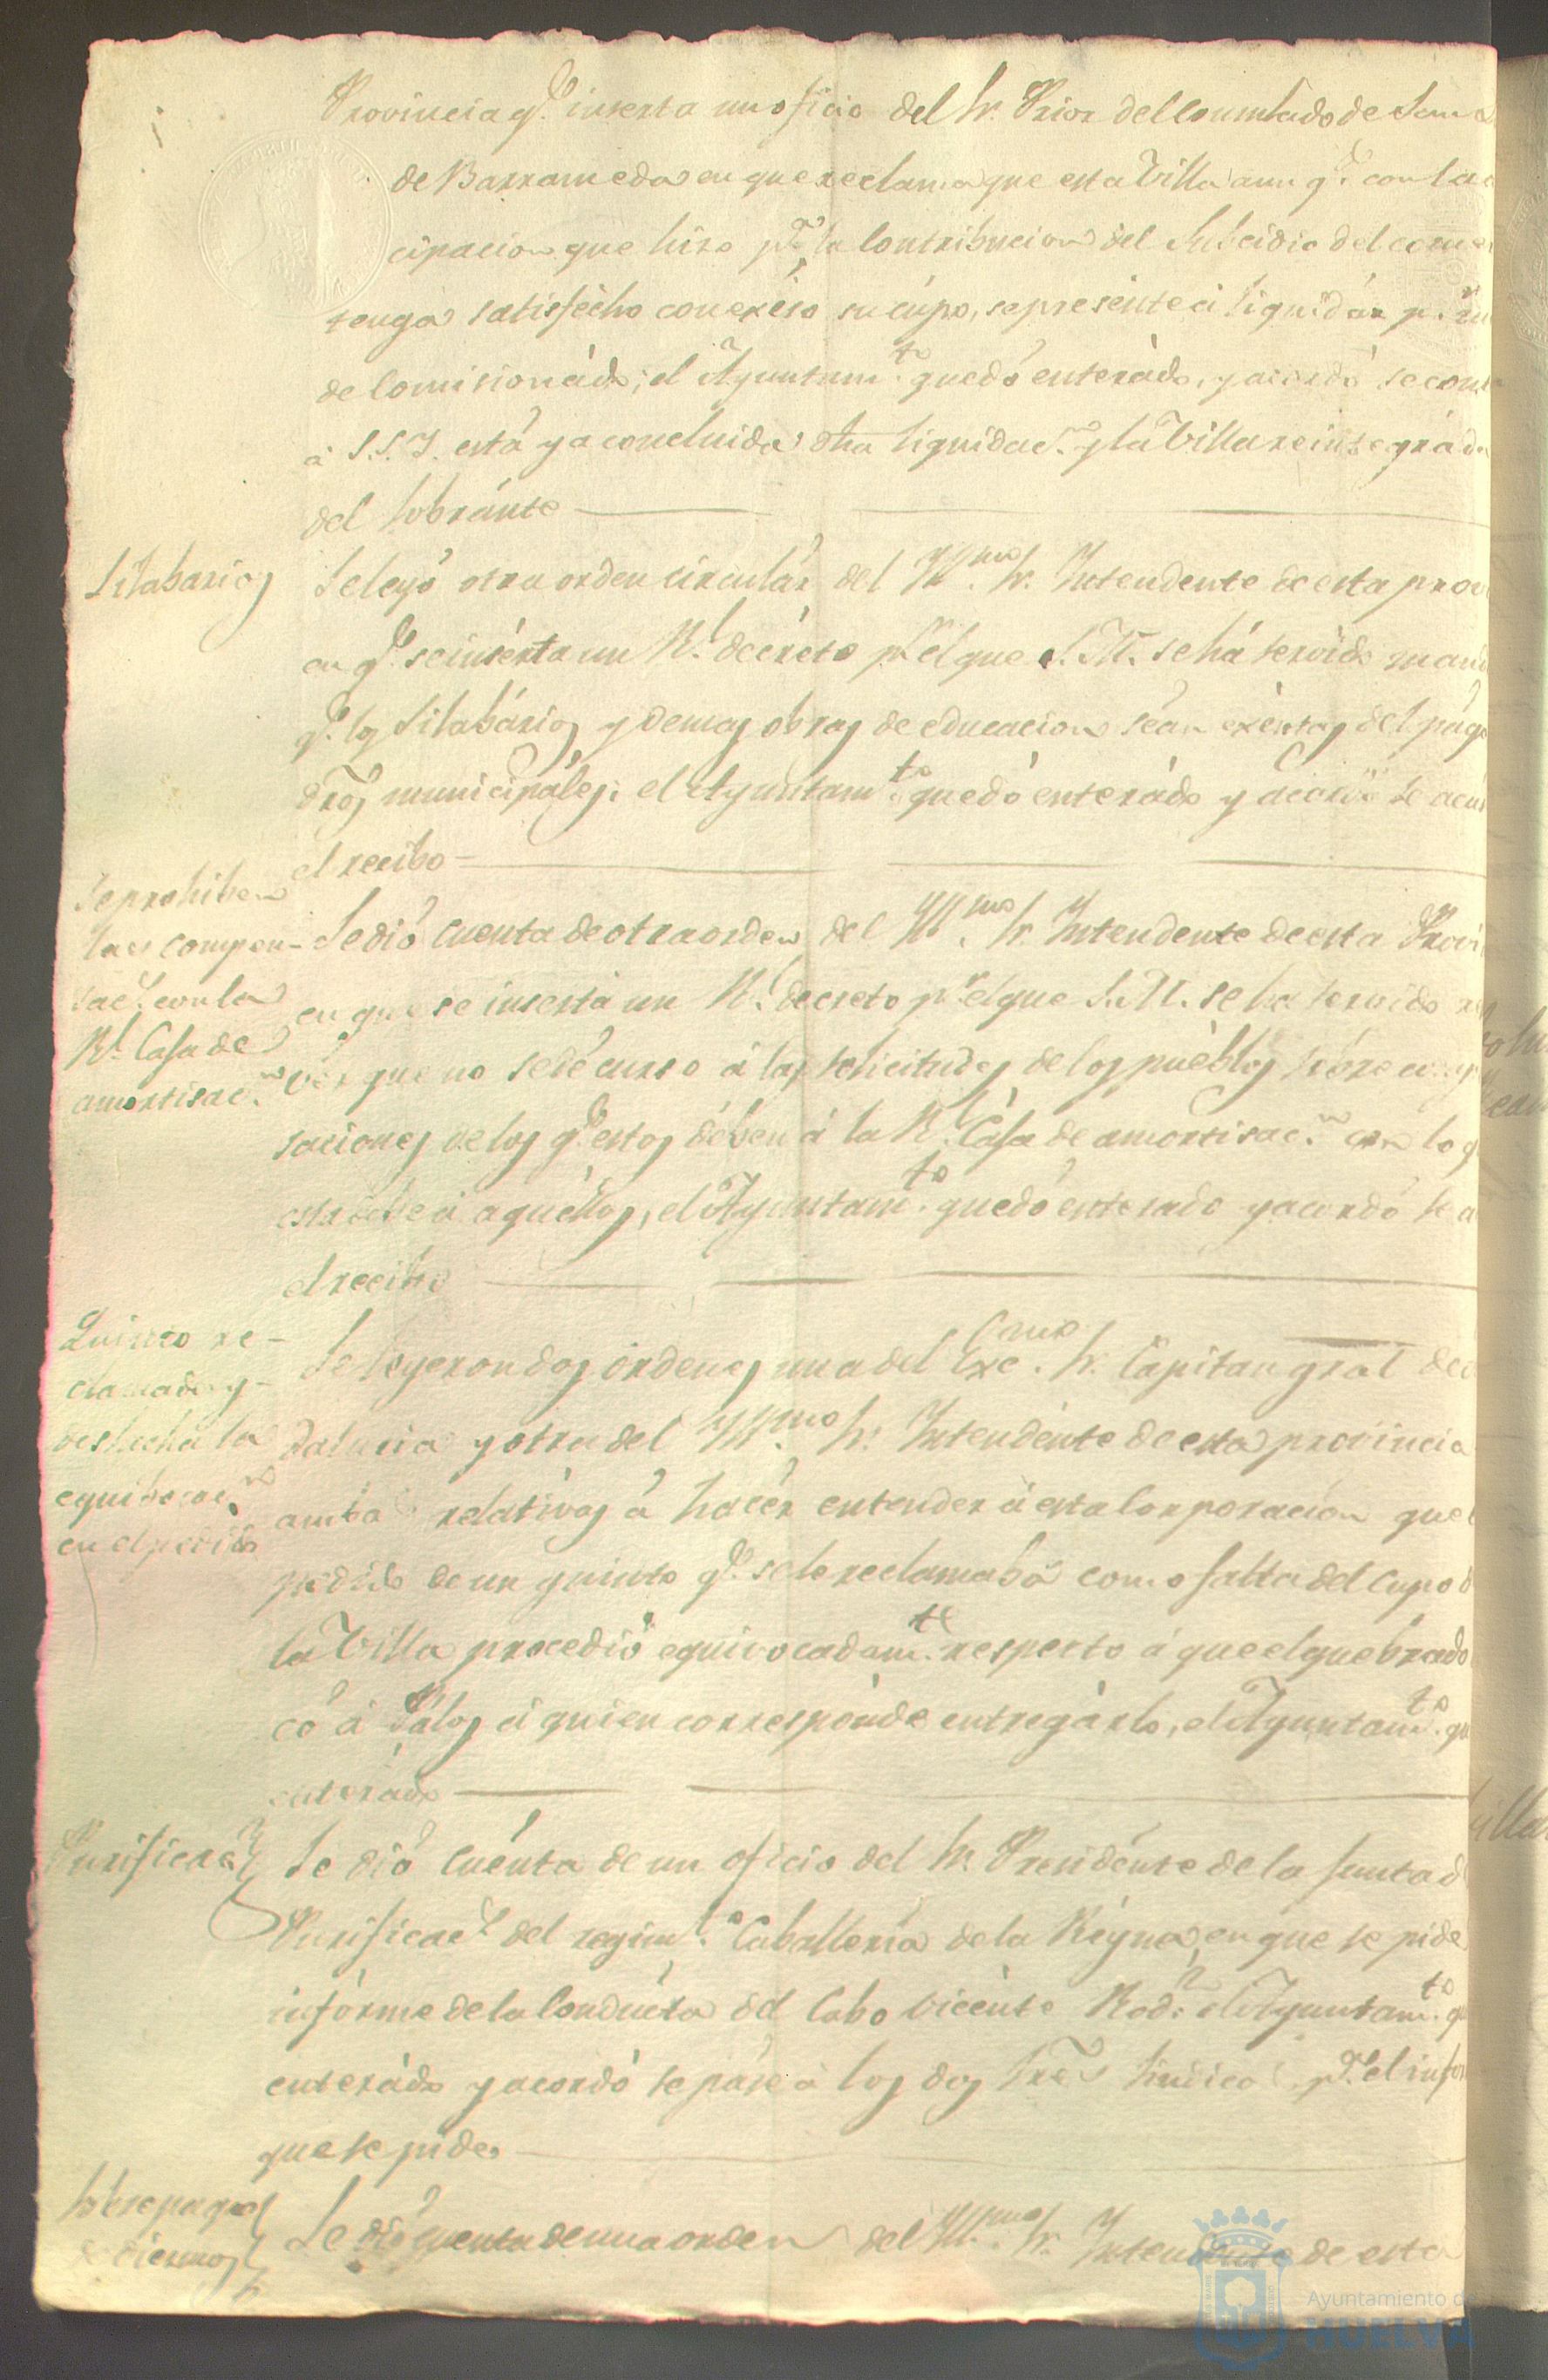 Provincia q.e inserta un oficio del Sr. Prior del Consulado de San
de Barrameda en que reclama que esta Villa aun q.e con la
cipacion que hizo p.a la Contribucion del Subcidio del come
tenga satisfecho con exéso su cúpo, se presénte á liquidár p.r
de Comisionádo; el Ayuntam.to quedó enterádo, y acordó se con
á S.S.Y. está ya concluida dha liquidac.n y la Villa reintegráda
del sobránte
Silabarios
Se leyó otra orden circulár del Yll.mo Sr. Yntendente de esta prov
en q.e se insérta un R.l decréto p.r el que S.M. se há servido mand
q.e los Silabários y demas obras de educacion séan exéntas del págo
dros municipáles; el Ayuntam.to quedó enterádo y acordó se acús
el recibo
Se prohiben
las compen-
sac.s con la
R.l Casa de
amortisac.n
Se dió cuenta de otra orden del Yll.mo Sr. Yntendente de esta Provi
en que se inserta un R.l decreto p.r el que S.M. se ha servido re
vér que no se dé curso á las solicitudes de los puéblos sóbre
saciones de los q.e estos dében á la R.l Cása de amortisac.n con los
esta débe á aquéllos, el Ayuntam.to quedó enterado y acordó se a
el recibo
Quinto re-
clamado y
deshecha la
equibocac.n
en el pedido
Se leyeron dos órdenes una del Exc.mo Sr. Cápitan gral de
dalucia y otra del Yll.mo Sr. Yntendénte de esta província
ambas relatívas á hacér entender á esta Corporacion que
pedido de un quinto q.e se le reclamaba como falta del cupo d
la Villa procedió equivocadam.te respecto á que el quebrado
có á Pálos á quien correspónde entregárlo, el Ayuntam.to qu
enterádo
Purificac.s
Se dió cuénta de un oficio del Sr. Presidénte de la Junta d
Purificac.s del regim.to Caballería de la Réyna, en que se pide
infórme de la Condúcta del Cabo Vicénte Rod.z el Ayuntam.to q
enterádo y acordó se páse á los dos Sres Sindicos p.a el infor
que se pide
Sobre pagos
de diezmos
Se dió cuenta de una orden del Yll.mo Sr. Yntendente de esta
Ayuntamiento de
HUELVA